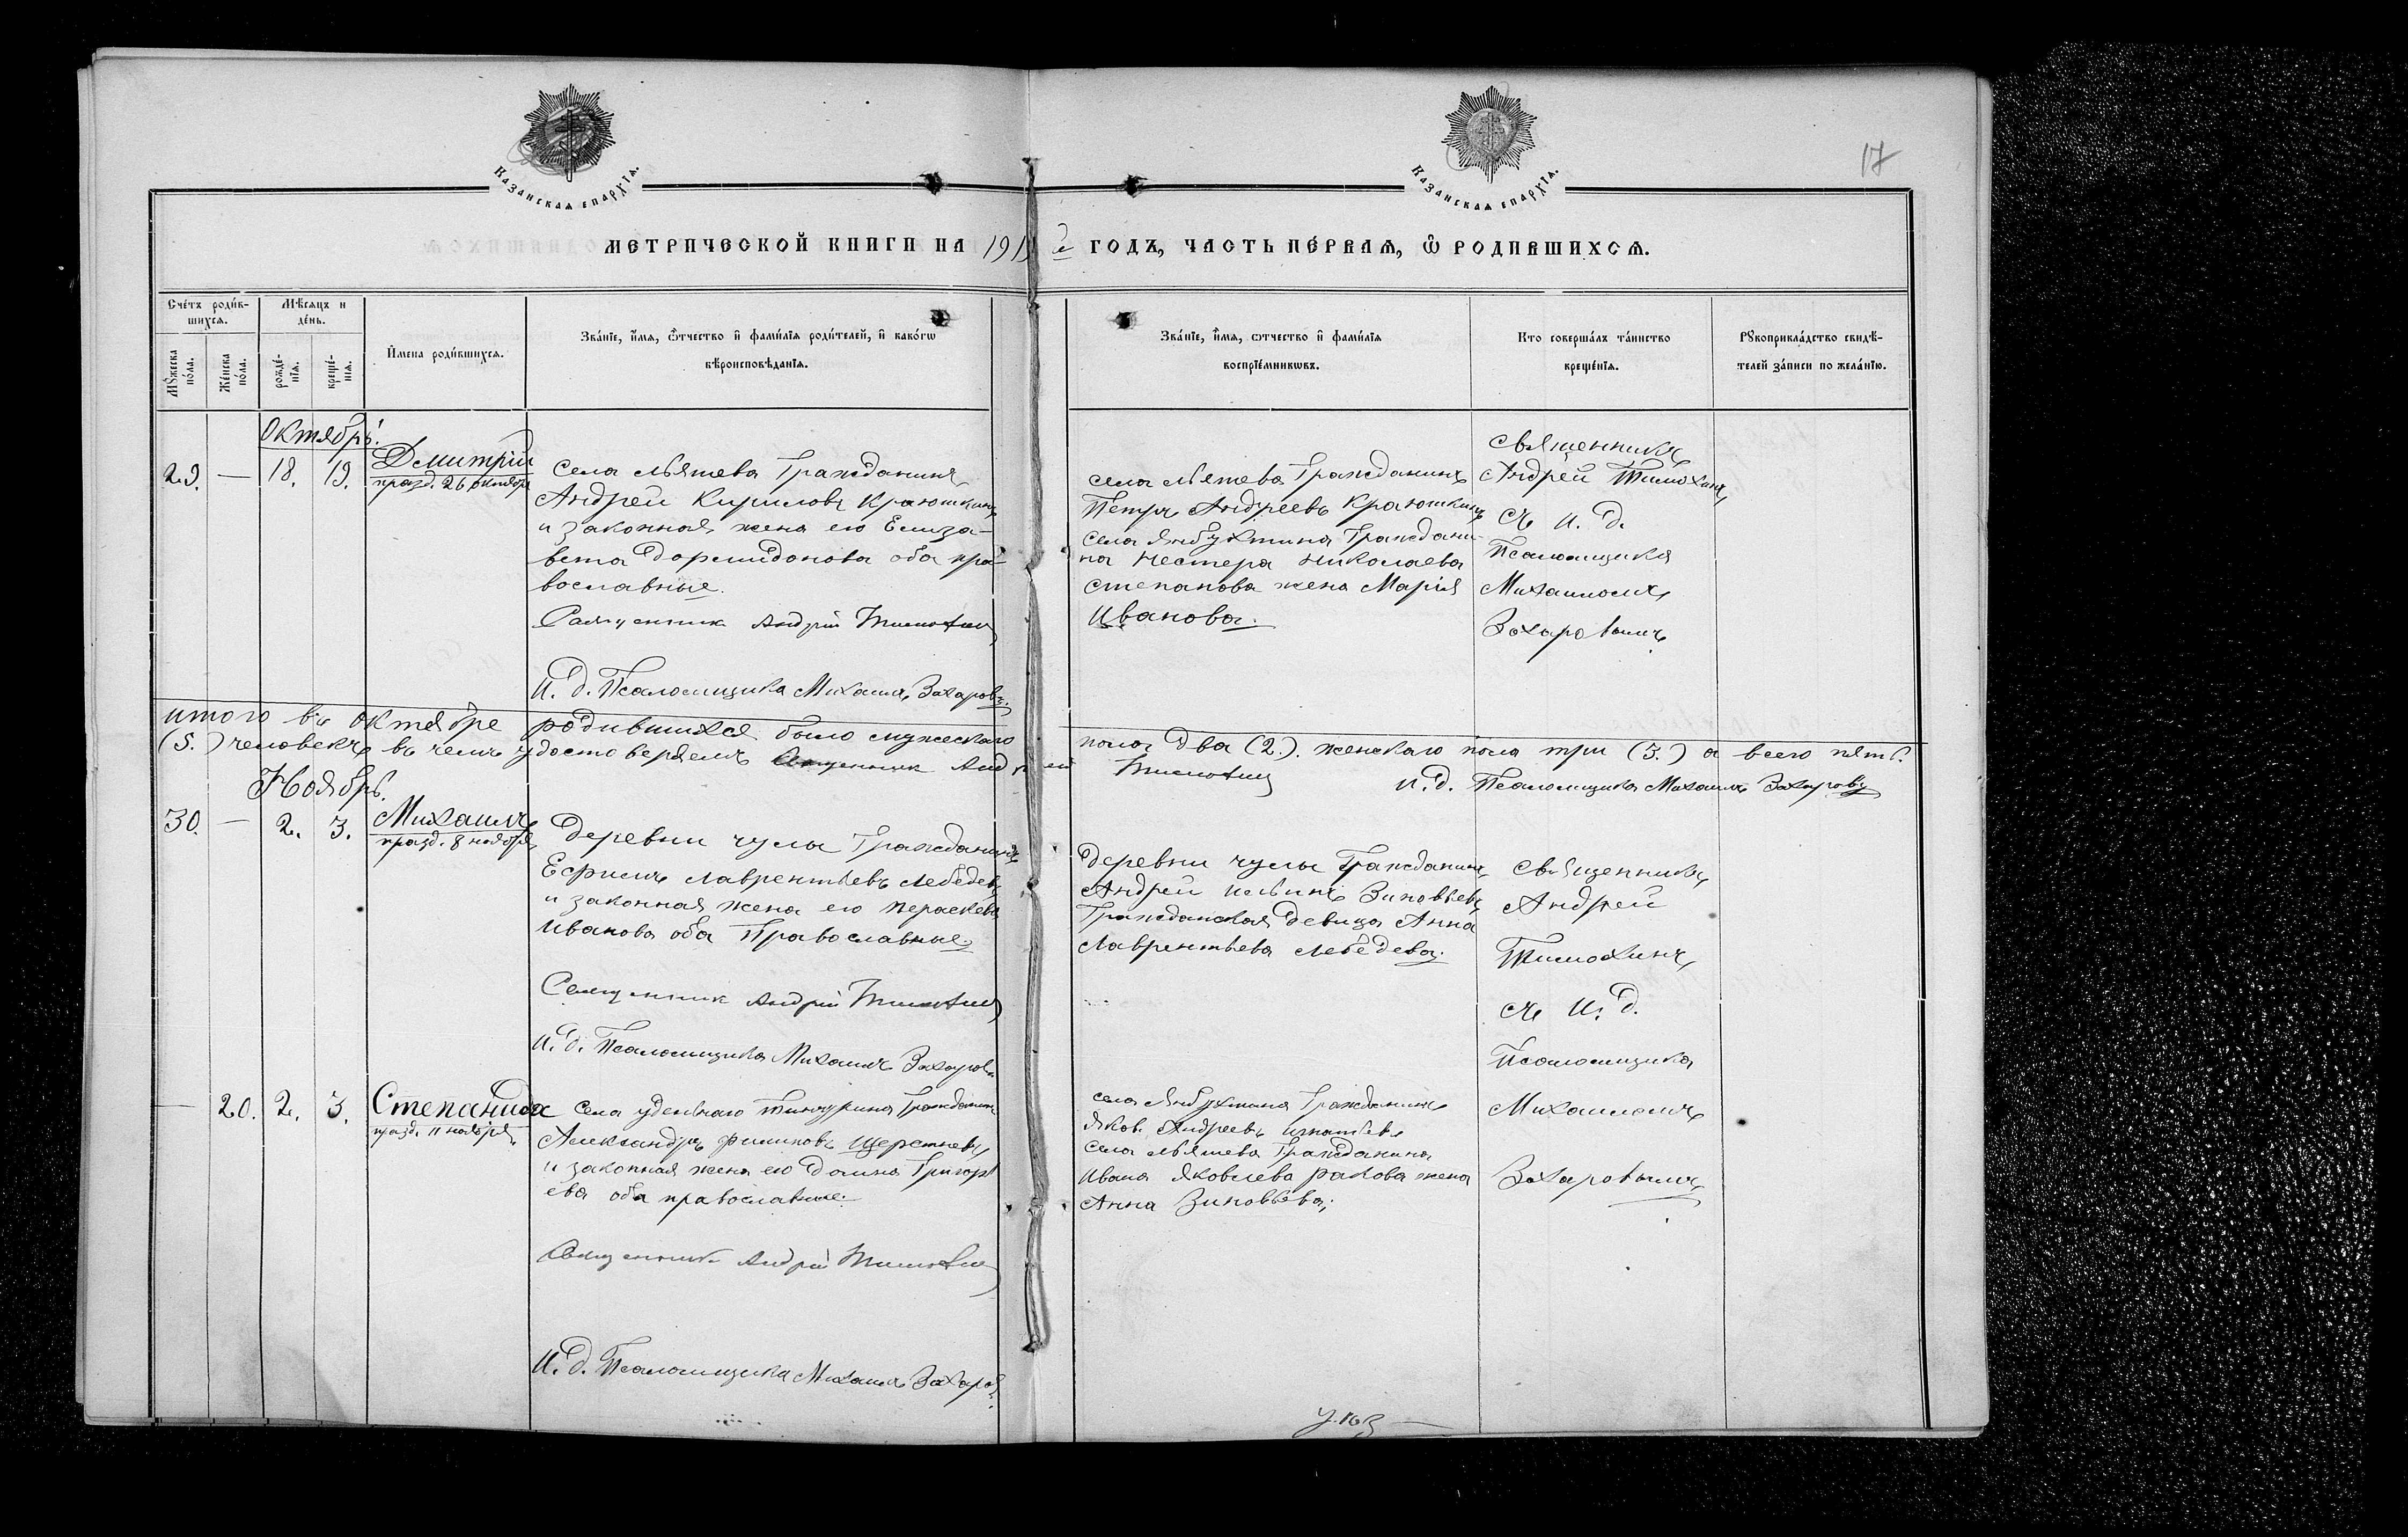 Казанская епархїя.
Казанская епархїя.
17
МЕТРИЧЕСКОЙ КНИГИ НА 191
ГОДЪ, ЧАСТЬ ПЕ́РВАЯ, Ѿ РОДИВШИХСЯ.
Сче́тъ роди́в-
шихся.
Мѣ́сяцъ и
де́нь.
Мꙋ́жеска
по́ла.
Же́нска
по́ла.
рожде́-
нїя.
креще́-
нїя.
И҆́мена роди́вшихся.
Зва́нїе, и҆́мя, ѻ҆́тчество и҆ фами́лїя роди́телей, и҆ како́гѡ
вѣроисповѣ́данїя.
Зва́нїе, и҆́мя, ѻ҆тчество и҆ фами́лїя
воспрїе́мникѡвъ.
Кто соверша́лъ та́инство
креще́нїя.
Рꙋкоприкла́дство свидѣ́-
телей за́писи по жела́нїю.
Октябрь.
29. — 18. 19. Дмитрій
празд. 26 октября
Села Льяшева Гражданинъ
Андрей Кириловъ Краюшкинъ
и законная жена его Елиза-
вета Дормидонова оба пра-
вославные.
Священник Андрей Тимохин
И. д. Псаломщика Михаилъ Захаровъ.
села Льяшева Гражданинъ
Петръ Андреевъ Краюшкинъ
села Янбухтина Граждани-
на Нестера Николаева
Степанова жена Марія
Иванова.
Священникъ
Андрей Тимохинъ
съ и. д.
Псаломщика
Михаиломъ
Захаровымъ
итого въ октябре родившихся было мужескаго
пола два (2). женскаго пола три (3.) а всего пять
(5.) человекъ въ чемъ удостоверяемъ Священник Андрей
Тимохин и. д. Псаломщика Михаилъ Захаровъ
Ноябрь.
30. — 2. 3. Михаилъ
празд. 8 ноября
Деревни Чулы Гражданинъ
Ефримъ Лаврентьевъ Лебедевъ
и законная жена его Пераскева
Иванова оба Православные
Священник Андрей Тимохин
И. д. Псаломщика Михаилъ Захаровъ
Деревни Чулы Гражданинъ
Андрей Ильинъ Зиновьевъ
Гражданская девица Анна
Лаврентьева Лебедева.
Священникъ
Андрей
Тимохинъ
съ И. д.
Псаломщика
Михаиломъ
Захаровымъ
— 20. 2. 3. Степанида
празд. 11 ноября
Села удельнаго Тинчурина Гражданинъ
Александръ Филиповъ
и законная жена его Домна Григорь
ева оба православные.
Священник Андрей Тимохин
И. д. Псаломщика Михаилъ Захаров
села Янбухтина Гражданинъ
Яков. Андреевъ Игнатьевъ
села Льяшева Гражданина
Ивана Яковлева Ракова жена
Анна Зиновьева;